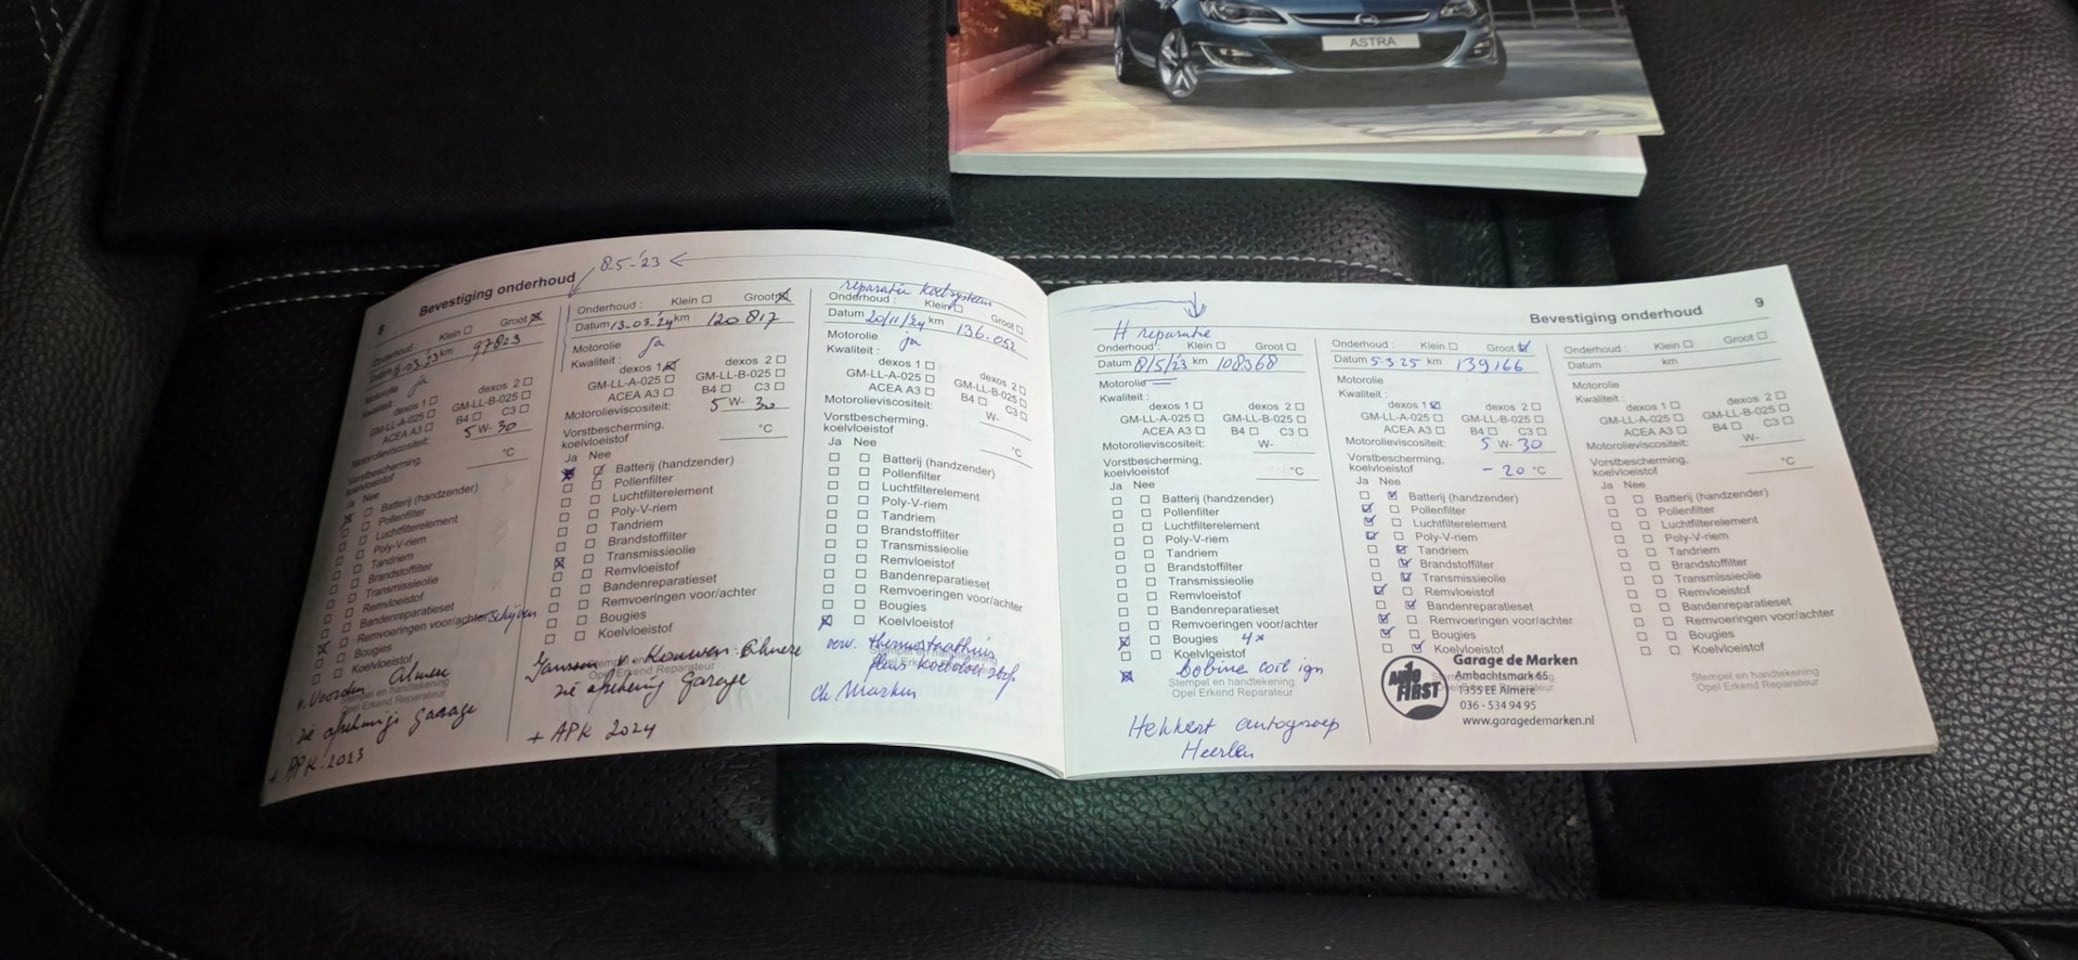 ASTRA
8
Bevestiging onderhoud
8.5-'23
Onderhoud :
Klein
Groot
Datum
-03-23 km 97823
Motorolie ja
Kwaliteit :
dexos 1 dexos 2
GM-LL-A-025 GM-LL-B-025
ACEA A3 B4 C3
Motorolieviscositeit: 5 W- 30
Vorstbescherming,
koelvloeistof °C
Ja Nee
Batterij (handzender)
Pollenfilter
Luchtfilterelement
Poly-V-riem
Tandriem
Brandstoffilter
Transmissieolie
Remvloeistof
Bandenreparatieset
Remvoeringen voor/achter schijven
Bougies
Koelvloeistof
Stempel en handtekening
Opel Erkend Reparateur
v. Voorden Almere
zie aftekening garage
+ APK 2023
Onderhoud : Klein Groot
Datum 13-03-'24 km 120 817
Motorolie ja
Kwaliteit :
dexos 1 dexos 2
GM-LL-A-025 GM-LL-B-025
ACEA A3 B4 C3
Motorolieviscositeit: 5 W- 30
Vorstbescherming,
koelvloeistof °C
Ja Nee
Batterij (handzender)
Pollenfilter
Luchtfilterelement
Poly-V-riem
Tandriem
Brandstoffilter
Transmissieolie
Remvloeistof
Bandenreparatieset
Remvoeringen voor/achter
Bougies
Koelvloeistof
Stempel en handtekening
Opel Erkend Reparateur
Janssen v. Kouwen Almere
zie aftekening garage
+ APK 2024
reparatie koelsysteem
Onderhoud : Klein Groot
Datum 20/11/24 km 136.052
Motorolie ja
Kwaliteit :
dexos 1 dexos 2
GM-LL-A-025 GM-LL-B-025
ACEA A3 B4 C3
Motorolieviscositeit: W-
Vorstbescherming,
koelvloeistof °C
Ja Nee
Batterij (handzender)
Pollenfilter
Luchtfilterelement
Poly-V-riem
Tandriem
Brandstoffilter
Transmissieolie
Remvloeistof
Bandenreparatieset
Remvoeringen voor/achter
Bougies
Koelvloeistof
verv. thermostaathuis
plus koelvloeistof
de Marken
Bevestiging onderhoud
9
reparatie
Onderhoud : Klein Groot
Datum 8/5/'23 km 108368
Motorolie
Kwaliteit :
dexos 1 dexos 2
GM-LL-A-025 GM-LL-B-025
ACEA A3 B4 C3
Motorolieviscositeit: W-
Vorstbescherming,
koelvloeistof °C
Ja Nee
Batterij (handzender)
Pollenfilter
Luchtfilterelement
Poly-V-riem
Tandriem
Brandstoffilter
Transmissieolie
Remvloeistof
Bandenreparatieset
Remvoeringen voor/achter
Bougies 4x
Koelvloeistof
bobine coil ign
Stempel en handtekening
Opel Erkend Reparateur
Hekkert autogroep
Heerlen
Onderhoud : Klein Groot
Datum 5-3 25 km 139166
Motorolie
Kwaliteit :
dexos 1 dexos 2
GM-LL-A-025 GM-LL-B-025
ACEA A3 B4 C3
Motorolieviscositeit: 5 W- 30
Vorstbescherming,
koelvloeistof - 20 °C
Ja Nee
Batterij (handzender)
Pollenfilter
Luchtfilterelement
Poly-V-riem
Tandriem
Brandstoffilter
Transmissieolie
Remvloeistof
Bandenreparatieset
Remvoeringen voor/achter
Bougies
Koelvloeistof
AUTO FIRST
Garage de Marken
Ambachtsmark 65
1355 EE Almere
036 - 534 94 95
www.garagedemarken.nl
Onderhoud : Klein Groot
Datum km
Motorolie
Kwaliteit :
dexos 1 dexos 2
GM-LL-A-025 GM-LL-B-025
ACEA A3 B4 C3
Motorolieviscositeit: W-
Vorstbescherming,
koelvloeistof °C
Ja Nee
Batterij (handzender)
Pollenfilter
Luchtfilterelement
Poly-V-riem
Tandriem
Brandstoffilter
Transmissieolie
Remvloeistof
Bandenreparatieset
Remvoeringen voor/achter
Bougies
Koelvloeistof
Stempel en handtekening
Opel Erkend Reparateur